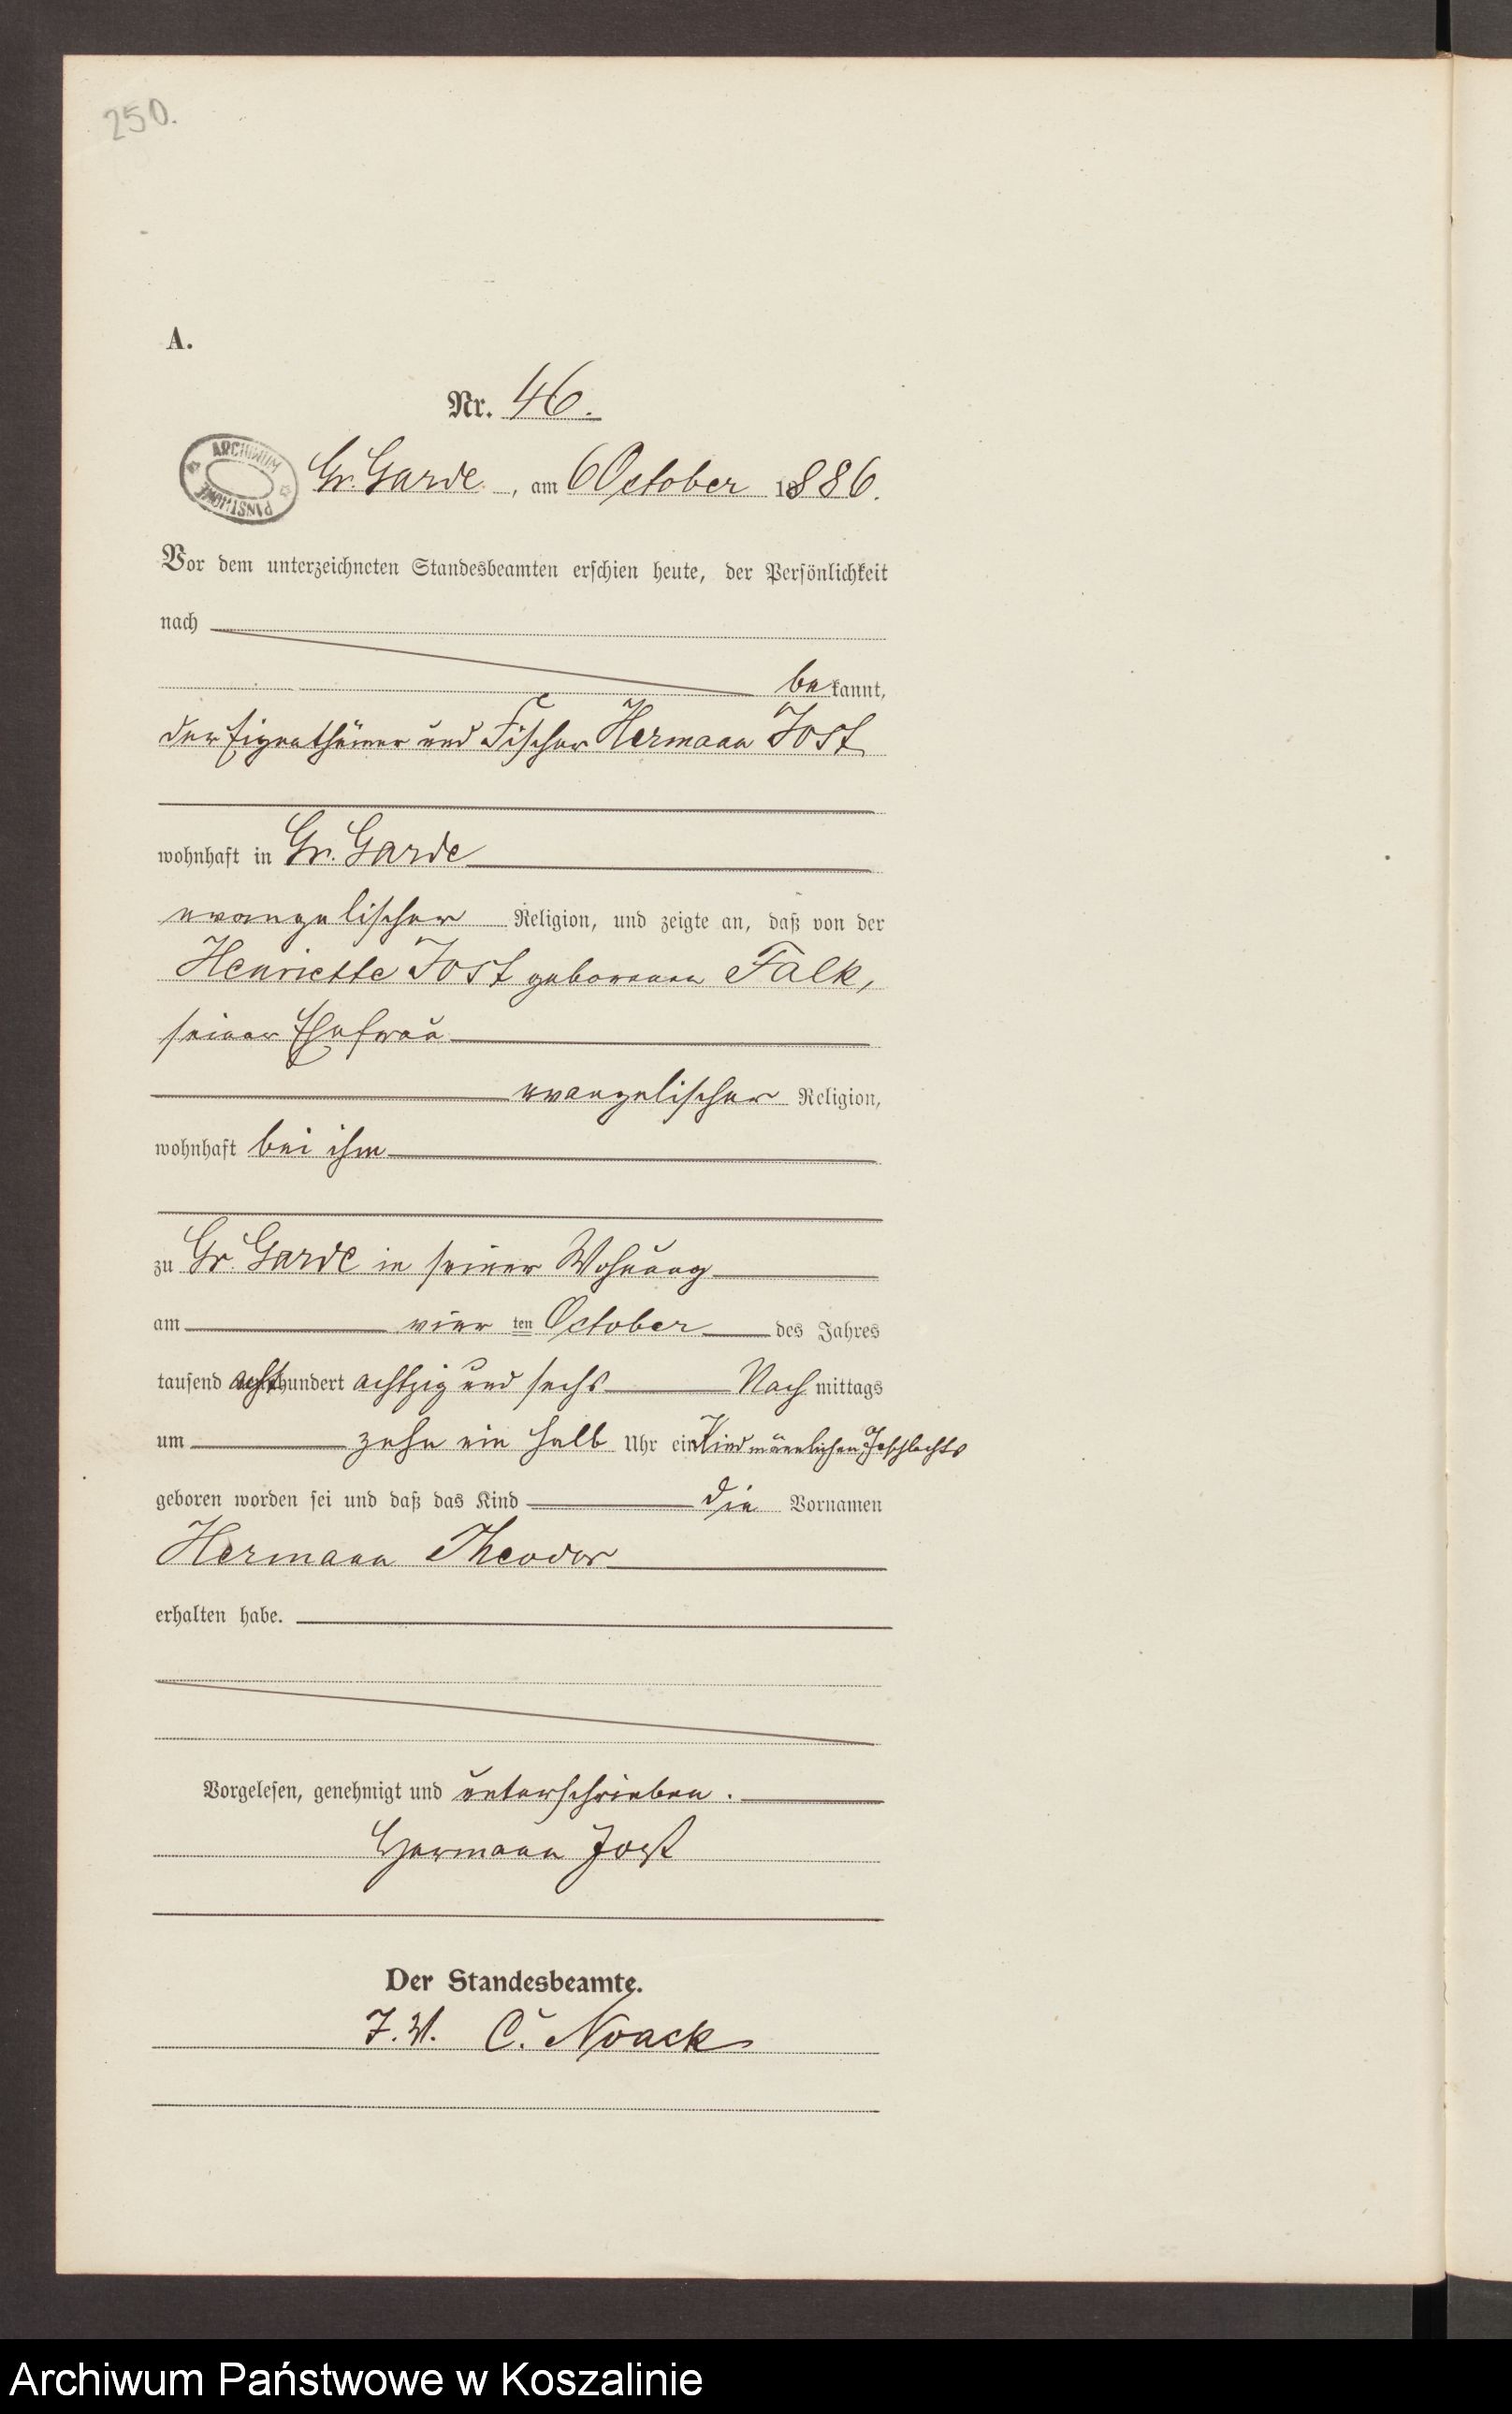 250.
A.
Nr. 46.
ARCHIWUM PAŃSTWOWE
Gr. Garde, am 6 October 1886.
Vor dem unterzeichneten Standesbeamten erschien heute, der Persönlichkeit
nach
bekannt,
der Eigenthümer und Fischer Hermann Jost
wohnhaft in Gr. Garde
evangelischer Religion, und zeigte an, daß von der
Henriette Jost geborenen Falk,
seiner Ehefrau
evangelischer Religion,
wohnhaft bei ihm
zu Gr. Garde in seiner Wohnung
am vierten October des Jahres
tausend achthundert achtzig und sechs Nachmittags
um zehn ein halb Uhr ein Kind männlichen Geschlechts
geboren worden sei und daß das Kind die Vornamen
Hermann Theodor
erhalten habe.
Vorgelesen, genehmigt und unterschrieben.
Hermann Jost
Der Standesbeamte.
J. V. C. Noack
Archiwum Państwowe w Koszalinie